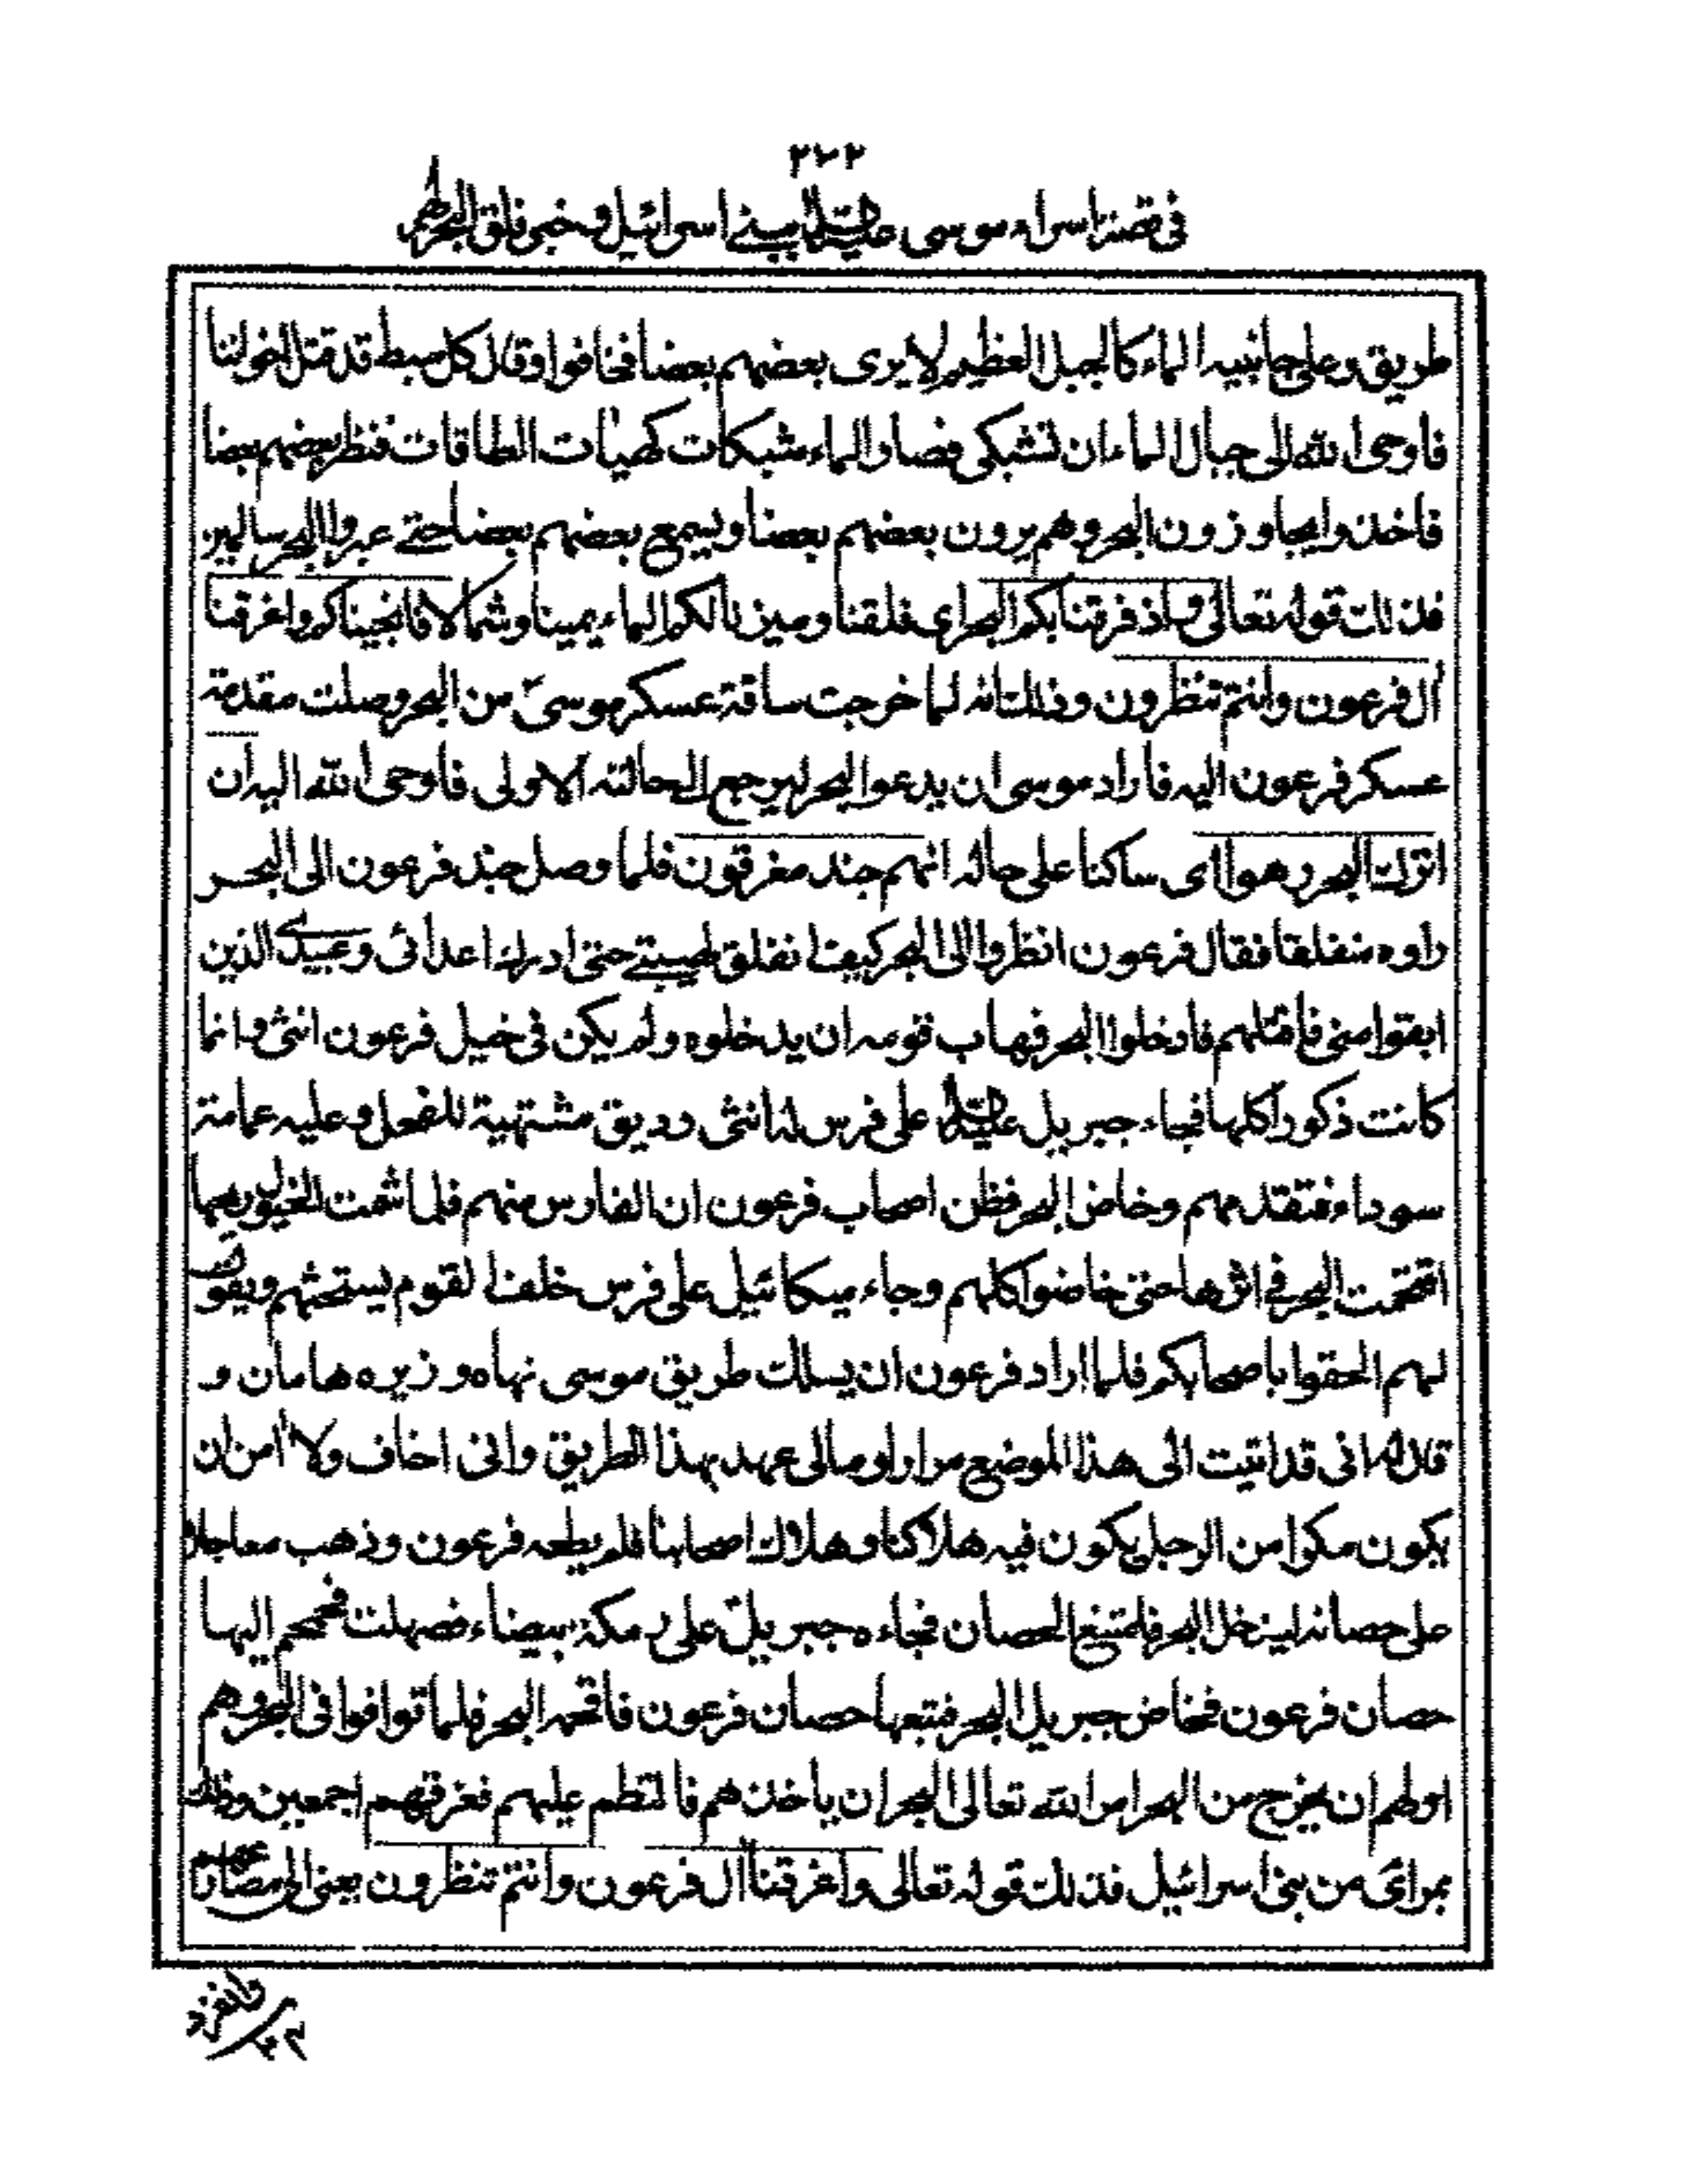 ٢٧٢
فى قصة اسراء موسى عليه السلام ببنى اسرائيل وخبر فلق البحر لهم
طريق وعلى جانبيه الماء كالجبل العظيم لا يرى بعضهم بعضا فخافوا وقال كل سبط قد قتل اخواننا
فاوحى الله الى جبال الماء ان تشبكى فصار الماء شبكات كهيأت الطاقات فنظر بعضهم بعضا
فاخذوا يجاوزون البحر وهم يرون بعضهم بعضا ويسمع بعضهم بعضا حتى عبروا البحر سالمين
فذلك قوله تعالى واذ فرقنا بكم البحر اى فلقنا وميزنا لكم الماء يمينا وشمالا فانجيناكم واغرقنا
آل فرعون وانتم تنظرون وذلك انه لما خرجت ساقة عسكر موسىٰ من البحر وصلت مقدمة
عسكر فرعون اليه فاراد موسى ان يدعو البحر ليرجع الى حالته الاولى فاوحى الله اليه ان
اترك البحر رهوا اى ساكنا على حاله انهم جند مغرقون فلما وصل جند فرعون الى البحر
راوه منفلقا فقال فرعون انظروا الى البحر كيف انفلق لهيبتى حتى ادرك اعدائى وعبيدى الذين
ابقوا منى فاقتلهم فادخلوا البحر فهاب قومه ان يدخلوه ولم يكن فى خيل فرعون انثى وانما
كانت ذكورا كلها فجاء جبريل عليه السلام على فرس له انثى وديق مشتهية للفحل وعليه عمامة
سوداء فتقدمهم وخاض البحر فظن اصحاب فرعون ان الفارس منهم فلما شمت الخيول ريحها
اقتحمت البحر فى اثرها حتى خاضوا كلهم وجاء ميكائيل على فرس خلف القوم يستحثهم ويقول
لهم الحقوا باصحابكم فلما اراد فرعون ان يسلك طريق موسى نهاه وزيره هامان و
قال له انى قد اتيت الى هذا الموضع مرارا ومالى عهد بهذا الطريق وانى اخاف ولا آمن ان
يكون مكرا من الرجل يكون فيه هلاكنا وهلاك اصحابنا فلم يطعه فرعون وذهب معاجلا
على حصانه ليدخل البحر فامتنع الحصان فجاءه جبريل على رمكة بيضاء فصهلت فحمحم اليها
حصان فرعون فخاض جبريل البحر فتبعها حصان فرعون فاقحمه البحر فلما توافوا فى البحر وهم
اولهم ان يخرج من البحر امر الله تعالى البحر ان ياخذهم فالتطم عليهم فغرقهم اجمعين وذلك
بمرآى من بنى اسرائيل فذلك قوله تعالى واغرقنا آل فرعون وانتم تنظرون يعنى الى مصارعهم